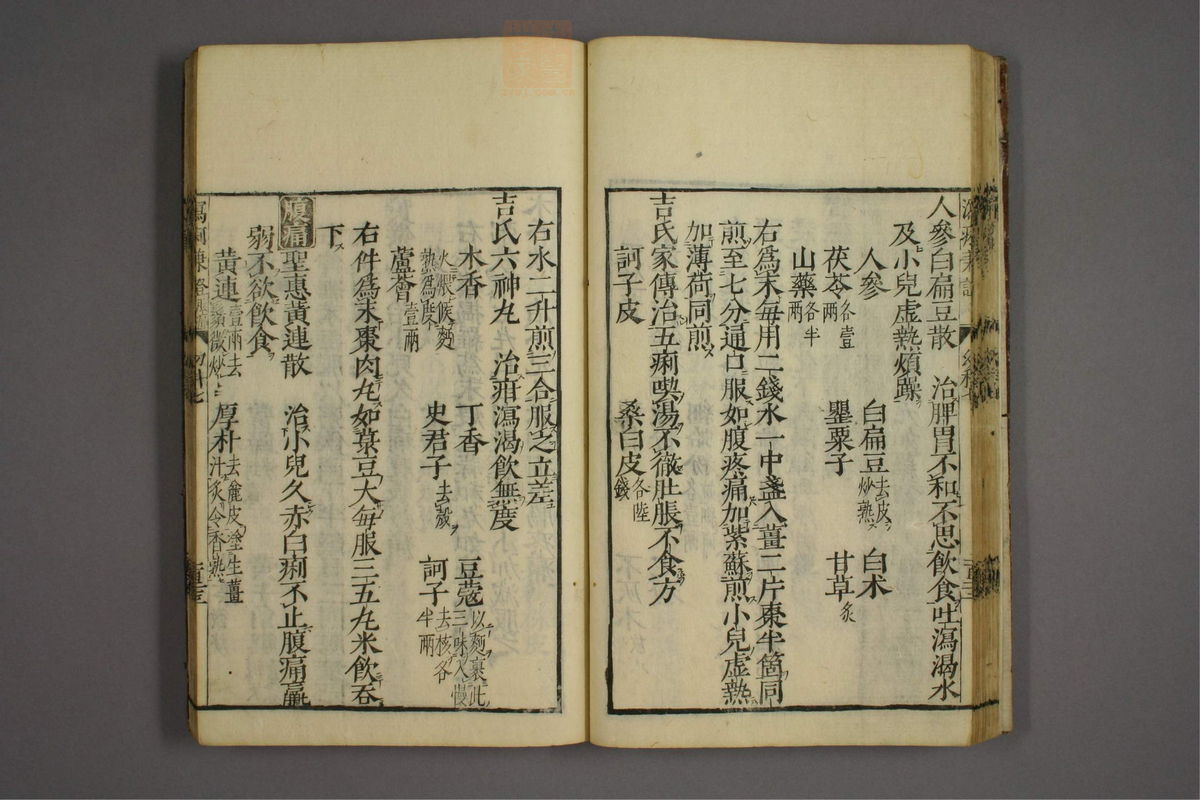 人參白扁豆散 治脾胃不和不思飲食吐瀉渴水
及小兒虛熱煩躁
人參 白扁豆去皮炒熟 白术
茯苓各壹兩 罌粟子 甘草炙
山藥各半兩
右為末每用二錢水一中盞入薑二片棗半箇同
煎至七分通口服如腹疼痛加紫蘇煎小兒虛熱
加薄荷同煎
吉氏家傳治五痢喫湯不徹肚脹不食方
訶子皮 桑白皮各陸錢
右水二升煎三合服之立差
吉氏六神丸 治疳瀉渴飲無度
木香 丁香 豆蔻以麵裹此三味入慢
火煨候麵熟為度 史君子去殼 訶子去核各半兩
蘆會壹兩
右件為末棗肉丸如菉豆大每服三五丸米飲吞
下
腹痛 聖惠黃連散 治小兒久赤白痢不止腹痛羸
弱不欲飲食
黃連壹兩去鬚微炒 厚朴去麁皮塗生薑汁炙令香熟